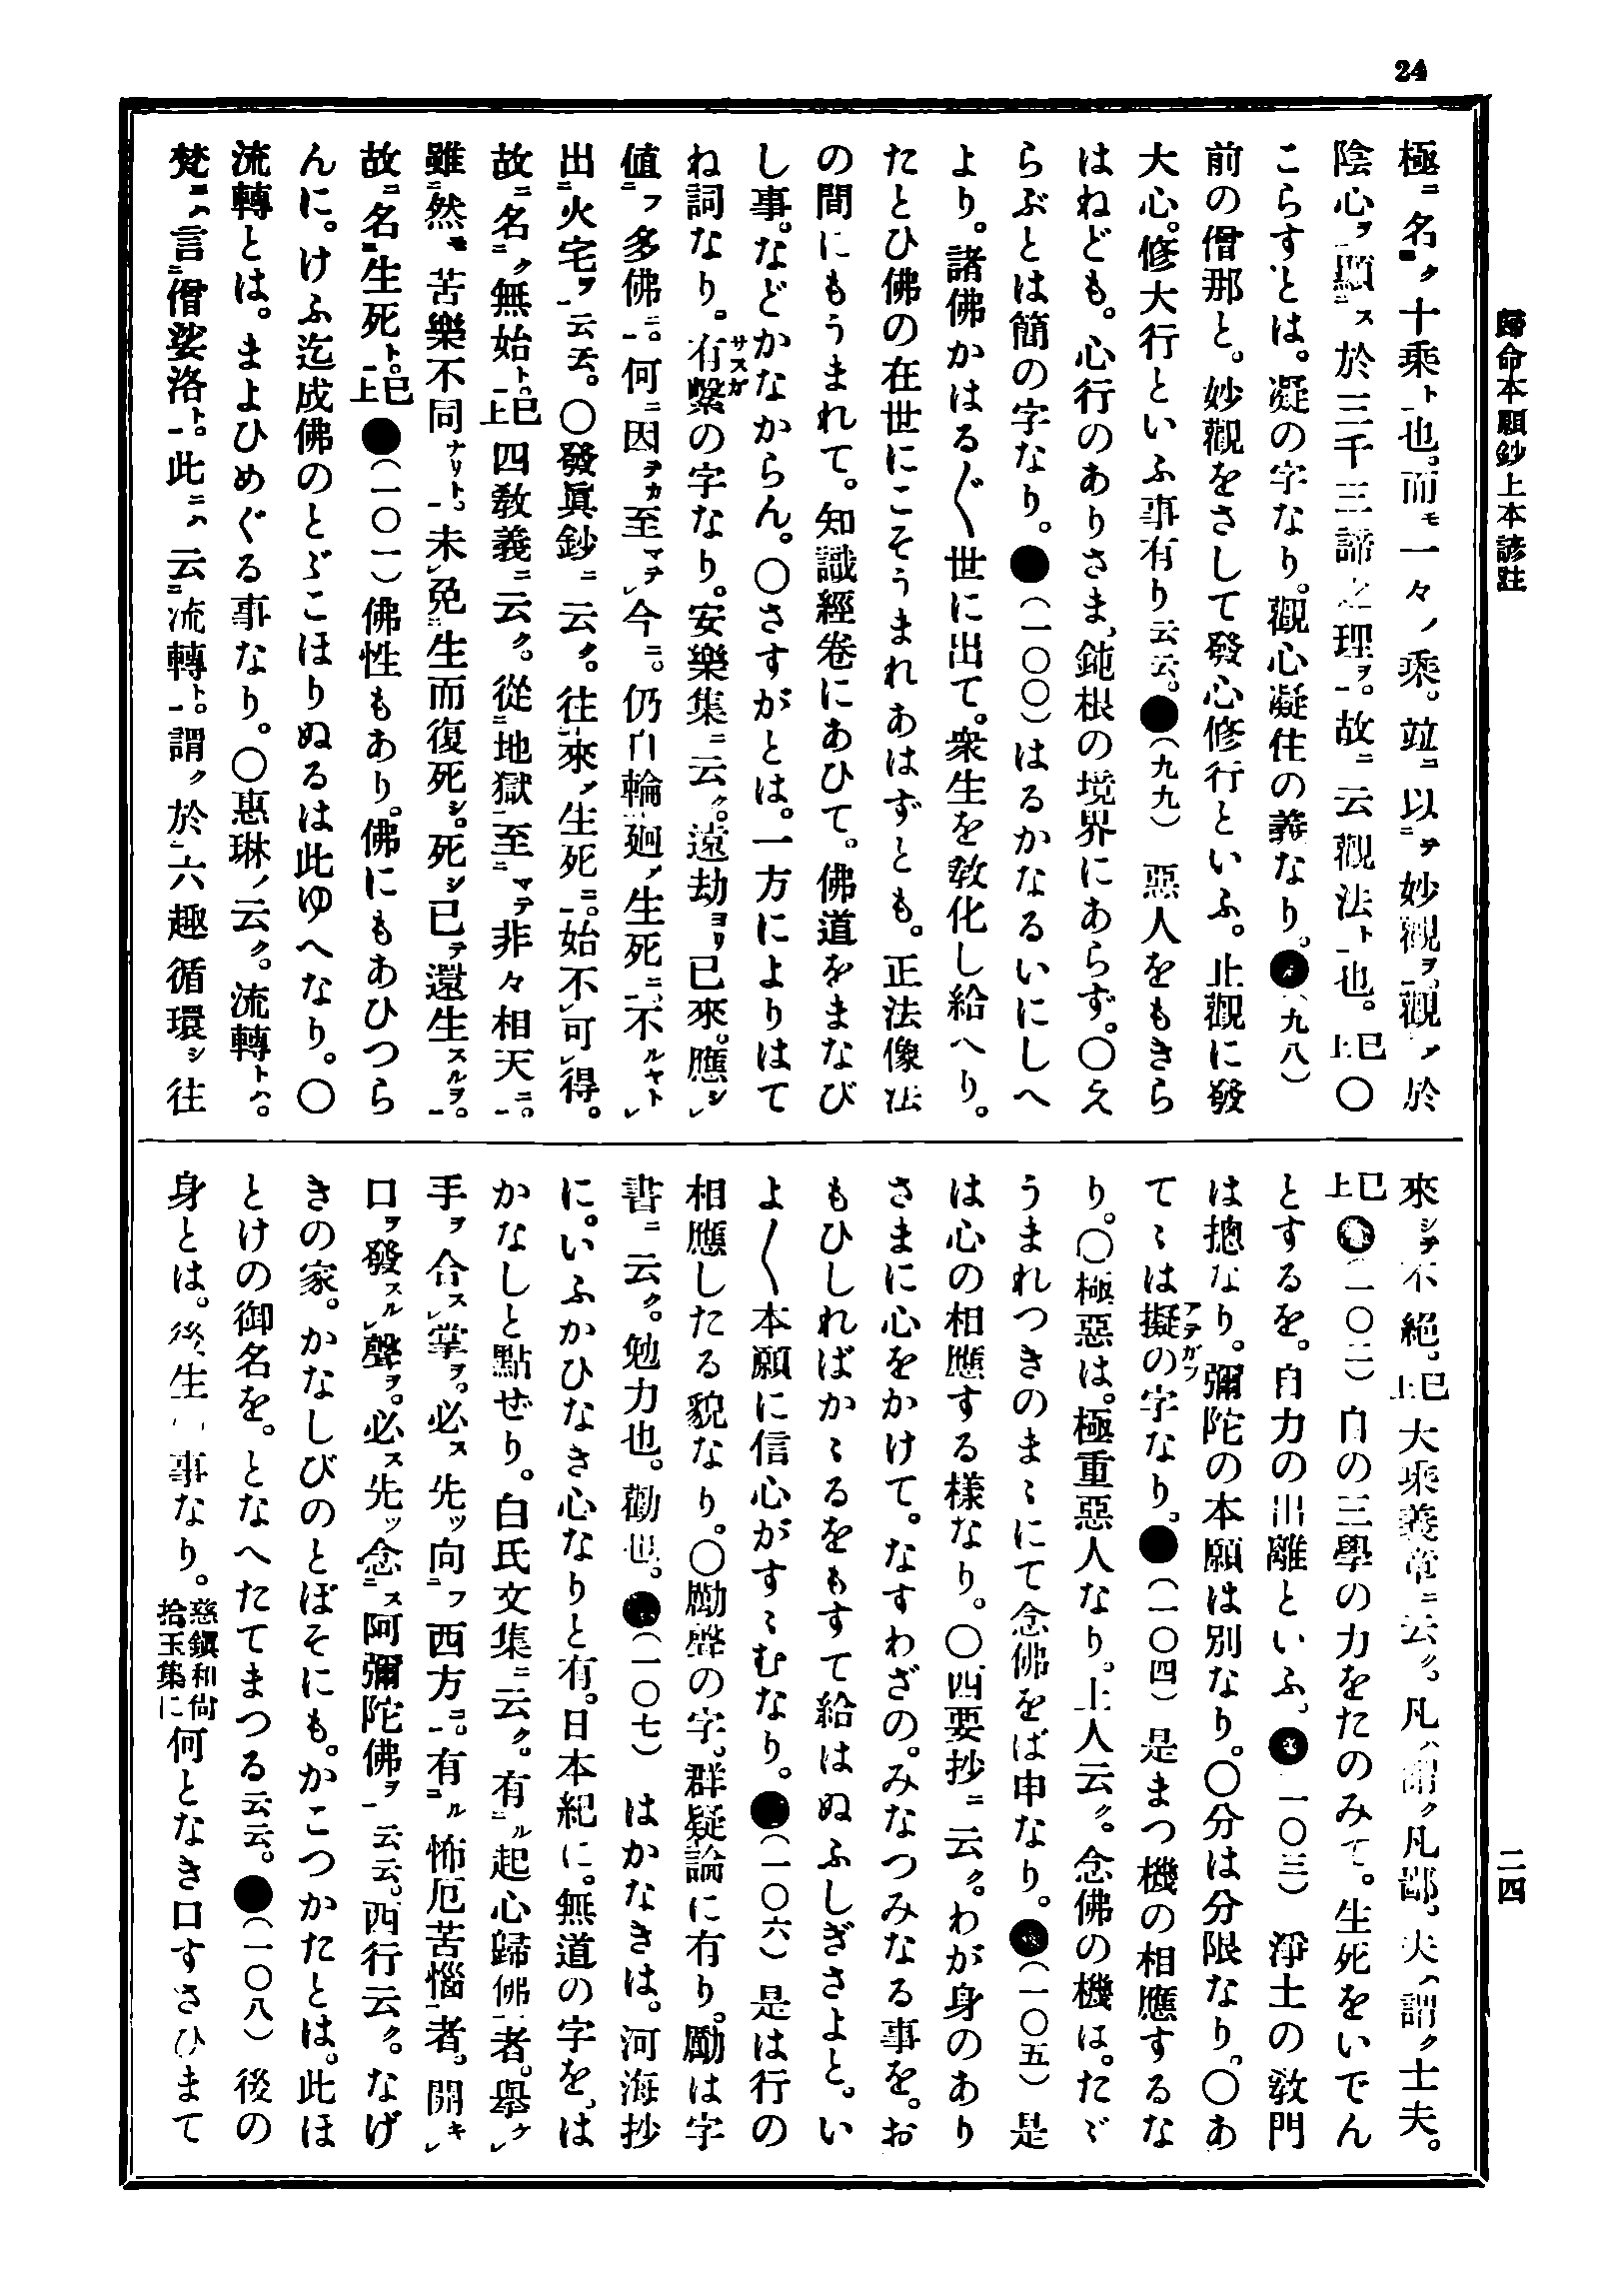 24
歸命本願鈔上本諺註
二四
極ニ名ク十乘ト也。而モ一々ノ乘。竝ニ以テ妙觀ヲ觀ノ於
陰心ヲ顯ス於三千三諦之理ヲ。故ニ云觀法ト也。已上○
こらすとは。凝の字なり。觀心凝住の義なり。●(九八)
前の僧那と。妙觀をさして發心修行といふ。止觀に發
大心。修大行といふ事有り云云。●(九九)惡人をもきら
はねども。心行のありさま、鈍根の境界にあらず。○え
らぶとは簡の字なり。●(一〇〇)はるかなるいにしへ
より。諸佛かはる〲世に出て。衆生を敎化し給へり。
たとひ佛の在世にこそうまれあはずとも。正法像法
の間にもうまれて。知識經卷にあひて。佛道をまなび
し事。などかなからん。○さすがとは。一方によりはて
ね詞なり。有繫サスガの字なり。安樂集ニ云ク。遠劫ヨリ已來。應シ
値フ多佛ニ。何ニ因ヲカ至マテ今ニ。仍自輪廻ノ生死ニ、不ルヤト
出火宅ヲ云云。○發眞鈔ニ云ク。往來ノ生死ニ。始不可得。
故ニ名ク無始ト。已上四敎義ニ云ク。從地獄至マテ非々相天ニ。
雖然モ苦樂不同ナリト。未免生而復死シ。死シ已テ還生スルヲ。
故ニ名生死ト。已上●(一〇一)佛性もあり。佛にもあひつら
んに。けふ迄成佛のとゞこほりぬるは此ゆへなり。○
流轉とは。まよひめぐる事なり。○惠琳ノ云ク。流轉トハ。
梵ニハ言僧娑洛ト。此ニハ云流轉ト。謂ク於六趣循環シ往
來シテ不絕。已上大乘義章ニ云ク。凡ハ謂ク凡鄙。夫ハ謂ク士夫。
已上●(一〇二)自の三學の力をたのみて。生死をいでん
とするを。自力の出離といふ。●(一〇三)淨土の敎門
は摠なり。彌陀の本願は別なり。○分は分限なり。○あ
てゝは擬アテガフの字なり。●(一〇四)是まつ機の相應するな
り。○極惡は。極重惡人なり。上人云ク。念佛の機は。たゞ
うまれつきのまゝにて念佛をば申なり。●(一〇五)是
は心の相應する樣なり。○四要抄ニ云ク。わが身のあり
さまに心をかけて。なすわざの。みなつみなる事を。お
もひしればかゝるをもすて給はぬふしぎさよと。い
よ〱本願に信心がすゝむなり。●(一〇六)是は行の
相應したる貌なり。○勵聲の字。群疑論に有り。勵は字
書ニ云ク。勉力也。勸也。●(一〇七)はかなきは。河海抄
に。いふかひなき心なりと有。日本紀に。無道の字を、は
かなしと點ぜり。白氏文集ニ云ク。有ル起心歸佛者。擧ケ
手ヲ合ス掌ヲ。必ス先ッ向フ西方ニ。有ル怖厄苦惱者。開キ
口ヲ發スル聲ヲ。必ス先ッ念ス阿彌陀佛ヲ云云。西行云ク。なげ
きの家。かなしびのとぼそにも。かこつかたとは。此ほ
とけの御名を。となへたてまつる云云。●(一〇八)後の
身とは。後生ノ事なり。慈鎭和尙拾玉集に何となき口すさひまて